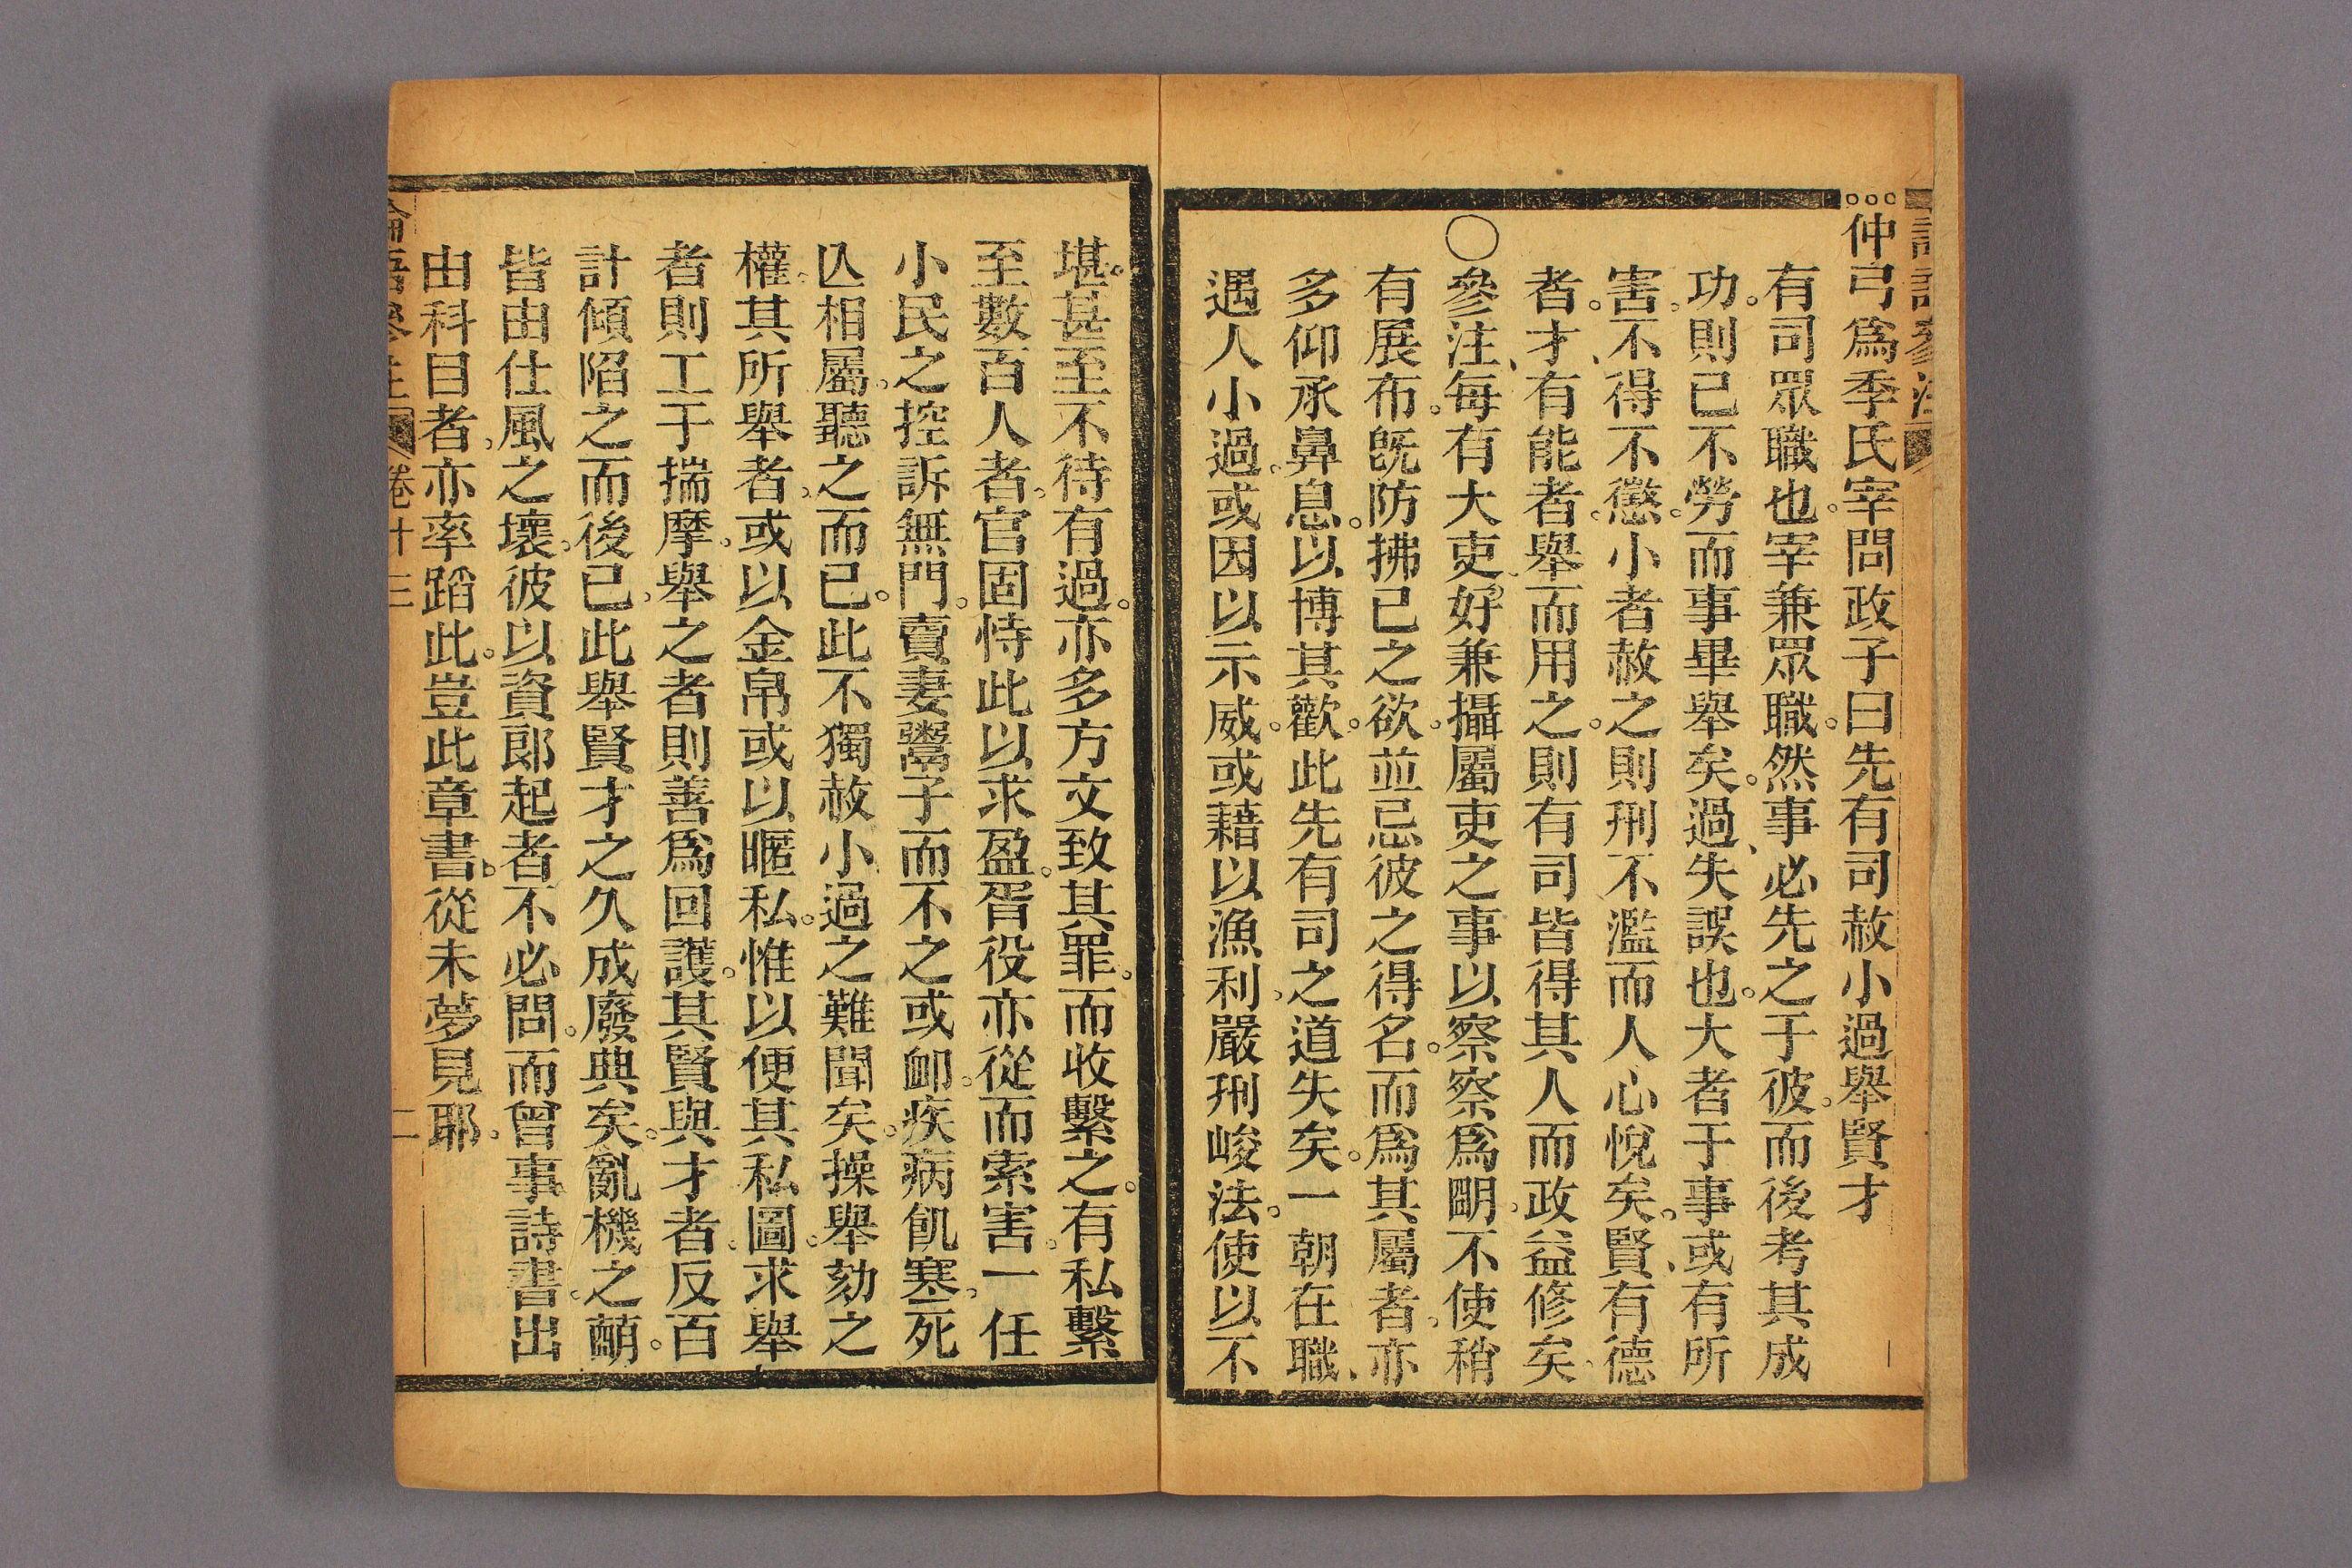 仲弓爲季氏宰問政子曰先有司赦小過舉賢才
有司眾職也。宰兼眾職。然事必先之于彼。而後考其成
功。則已不勞而事畢舉矣。過、失誤也。大者于事或有所
害。不得不懲。小者赦之。則刑不濫而人心悅矣。賢、有德
者。才、有能者。舉而用之。則有司皆得其人而政益修矣。
○參注、每有大吏。好兼攝屬吏之事。以察察爲朙。不使稍
有展布。旣防拂已之欲。並忌彼之得名。而爲其屬者。亦
多仰承鼻息。以博其歡。此先有司之道失矣。一朝在職、
遇人小過。或因以示威。或藉以漁利。嚴刑峻法。使以不
堪。甚至不待有過。亦多方文致其罪。而收繫之。有私繫
至數百人者。官固恃此以求盈。胥役亦從而索害。一任
小民之控訴無門。賣妻鬻子而不之或卹。疾病飢寒。死
亾相屬。聽之而已。此不獨赦小過之難聞矣。操舉劾之
權。其所舉者。或以金帛。或以暱私。惟以便其私圖。求舉
者則工于揣摩。舉之者則善爲回護。其賢與才者。反百
計傾陷之而後已。此舉賢才之久成廢典矣。亂機之萌。
皆由仕風之壞。彼以資郎起者不必問。而曾事詩書。出
由科目者。亦率蹈此。豈此章書。從未夢見耶。
論語參注 卷十三 二